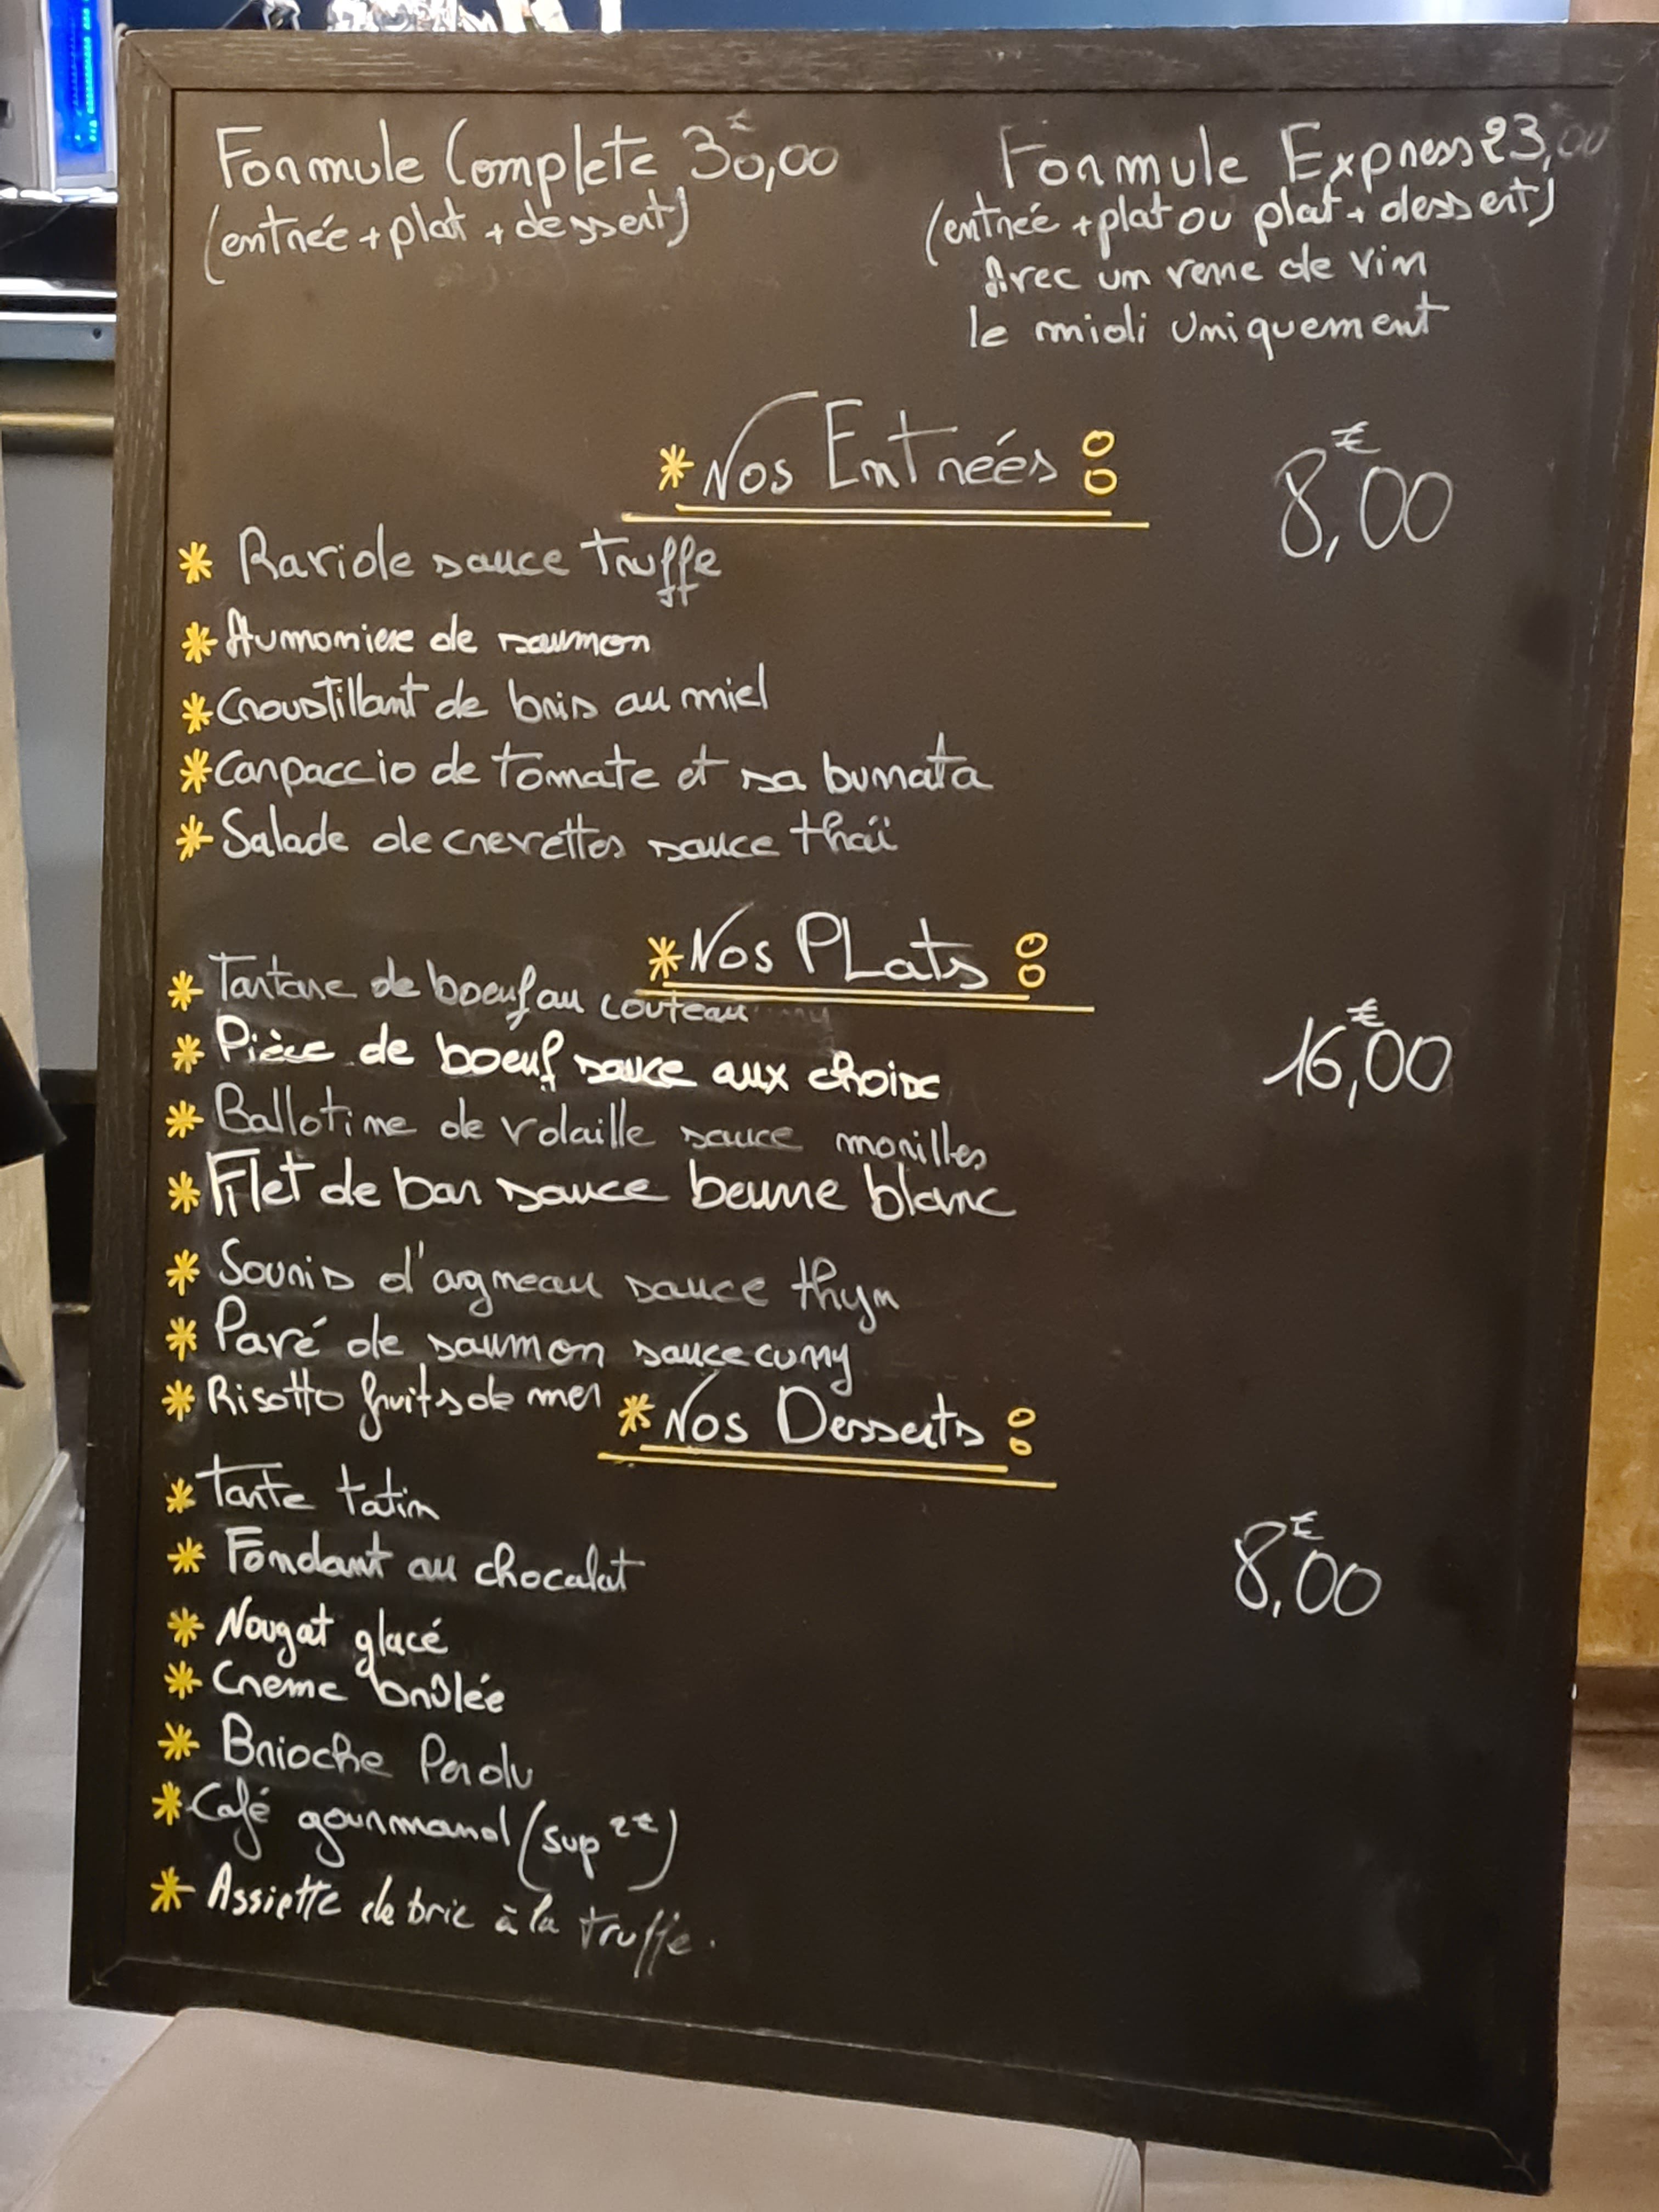 Formule Complete 30,00 €
(entrée + plat + dessert)
Formule Express 23,00
(entrée + plat ou plat + dessert)
Avec un verre de vin
le midi uniquement
* Nos Entrées :
8,00 €
* Raviole sauce truffe
* Aumoniere de saumon
* Croustillant de bris au miel
* Carpaccio de tomate et sa burrata
* Salade de crevettes sauce thaï
* Nos PLats :
16,00 €
* Tartare de boeuf au couteau
* Pièce de boeuf sauce aux choix
* Ballotine de volaille sauce morilles
* Filet de bar sauce beurre blanc
* Souris d'agneau sauce thym
* Pavé de saumon sauce curry
* Risotto fruits de mer
* Nos Desserts :
8,00 €
* Tarte tatin
* Fondant au chocolat
* Nougat glacé
* Creme brûlée
* Brioche Perdu
* Café gourmand (sup 2€)
* Assiette de brie à la truffe.